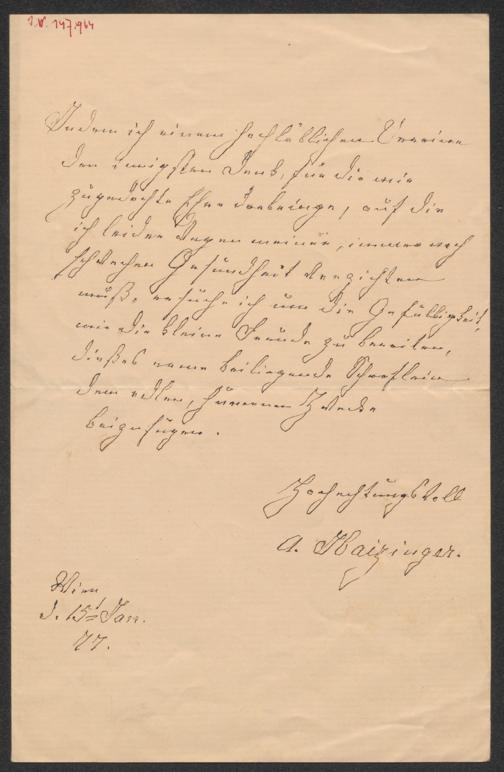 I.N. 147.964
Indem ich einem hochlöblichen Vereine
den innigsten Dank, für die mir
zugedachte Ehre darbringe, auf die
ich leider wegen meiner, immer noch
schwachen Gesundheit verzichten
muß, ersuche ich um die Gefälligkeit,
mir die kleine Freude zu bereiten,
dießes arme beiliegende Scherflein
dem edlen, Zwecke
beizufügen.
Hochachtungsvoll
A. Haizinger.
Wien
d. 15t Jan.
77.